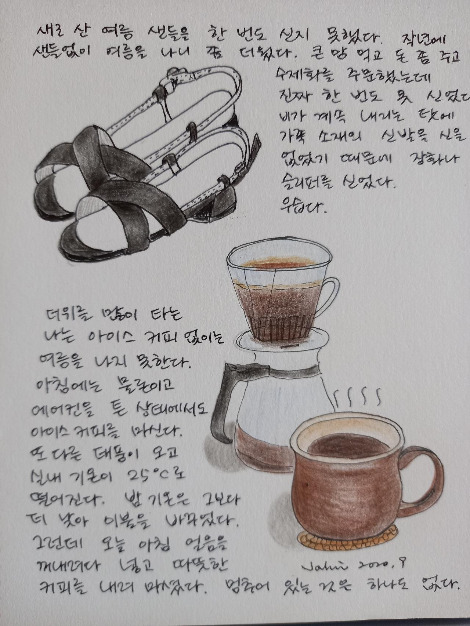 새로 산 여름 샌들을 한 번도 신지 못했다. 작년에
샌들없이 여름을 나니 좀 더웠다. 큰 맘 먹고 돈 좀 주고
수제화를 주문했는데
진짜 한 번도 못 신었다
비가 계속 내리는 탓에
가죽 소재의 신발을 신을
없었기 때문에 장화나
슬리퍼를 신었다.
우습다.
더위를 많이 타는
나는 아이스 커피 없이는
여름을 나지 못한다.
아침에는 물론이고
에어컨을 튼 상태에서도
아이스 커피를 마신다.
또 다른 태풍이 오고
실내 기온이 25℃로
떨어진다. 밤 기온은 그보다
더 낮아 이불을 바꾸었다.
그런데 오늘 아침 얼음을
꺼내려다 말고 따뜻한
커피를 내려 마셨다. 멈추어 있는 것은 하나도 없다.
2020. 9